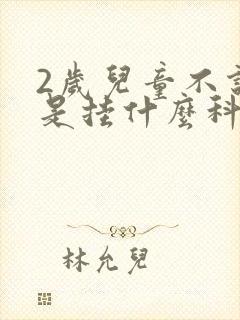 2歲兒童不言
是挂什麼科
林允兒